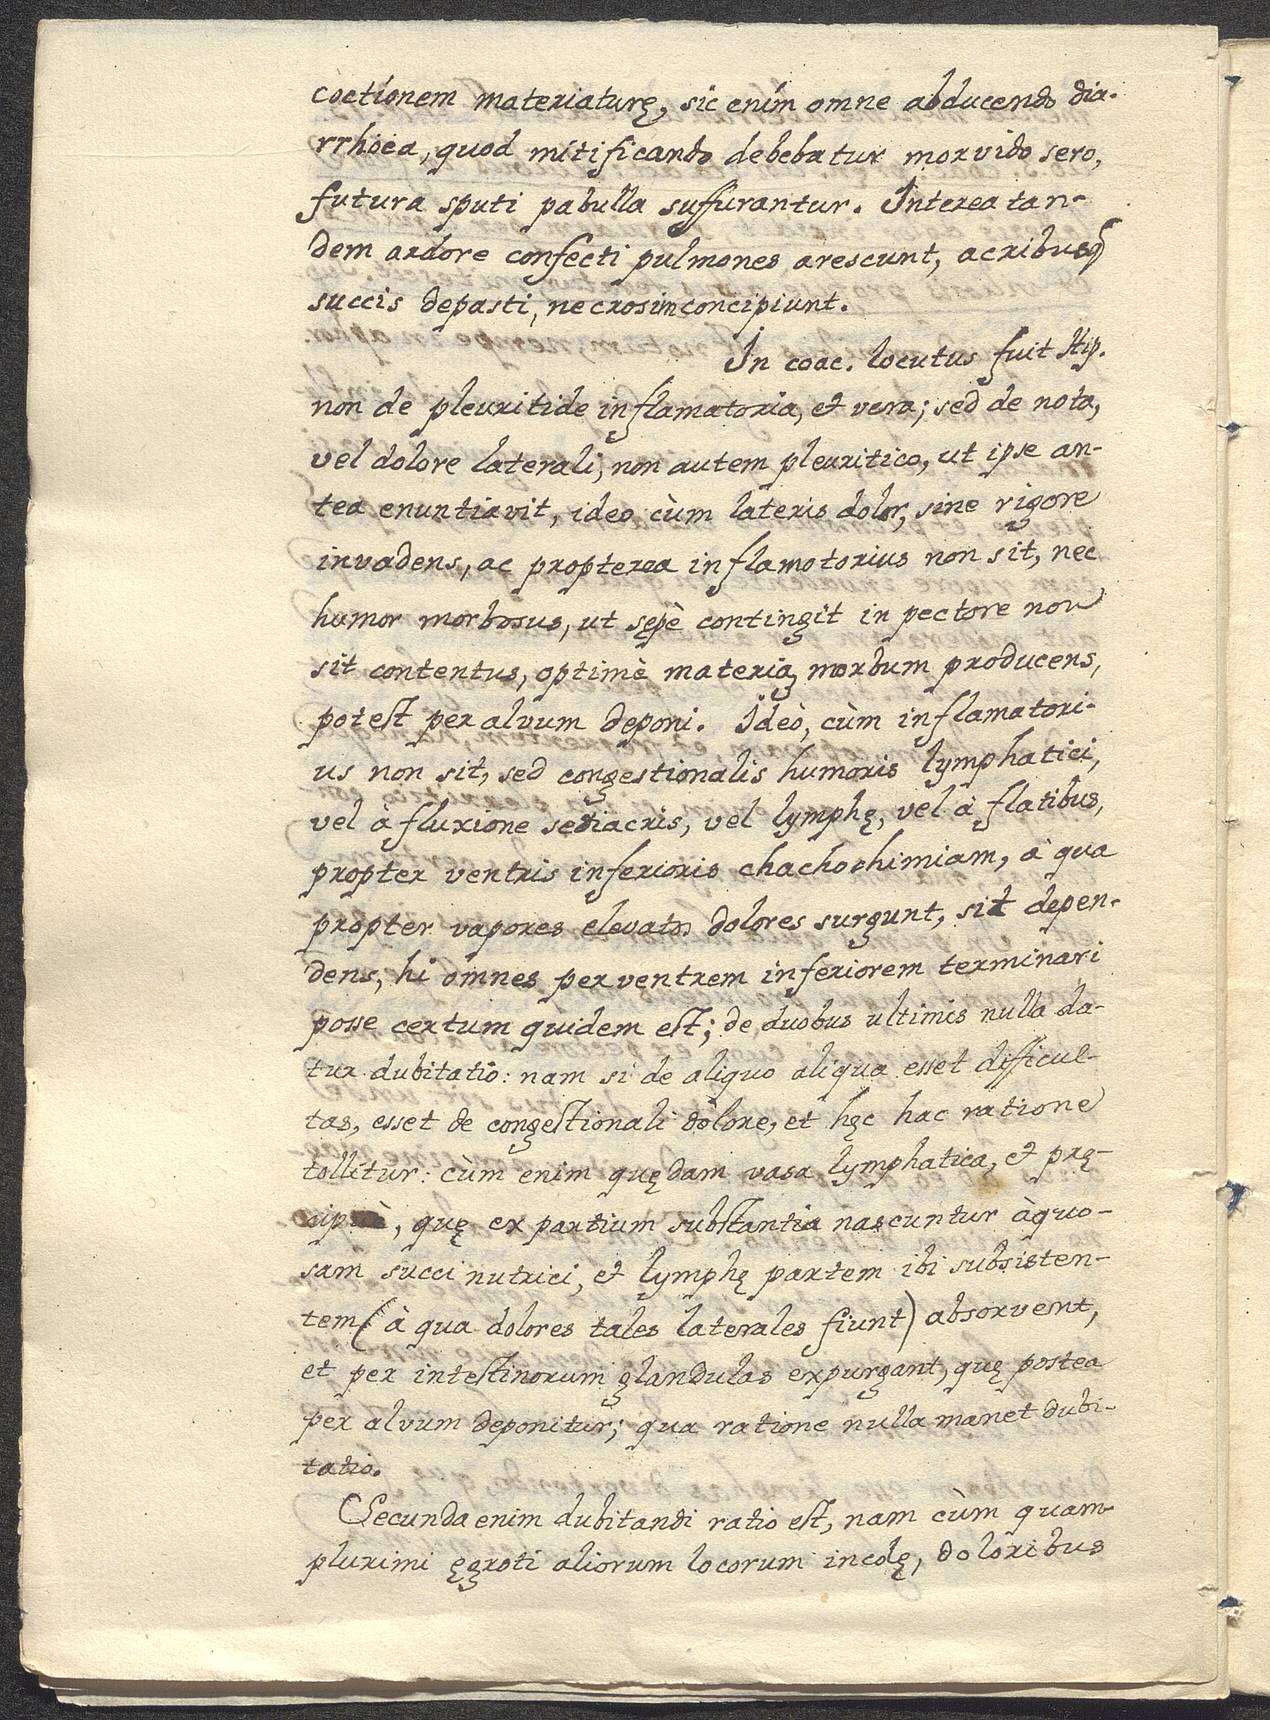 coctionem materiaturę, sic enim omne abducendo dia-
rrhoea, quod mitificando debebatur morvido sero,
futura sputi pabulla suffurantur. Interea tan-
dem ardore confecti pulmones arescunt, acribusq
succis depasti, necrosim concipiunt.
In coac. locutus fuit Hip.
non de pleuritide inflamatoria, et vera; sed de nota,
vel dolore laterali, non autem pleuritico, ut ipse an-
tea enuntiavit, ideo cùm lateris dolor, sine rigore
invadens, ac propterea inflamotorius non sit, nec
humor morbosus, ut sępè contingit in pectore non
sit contentus, optimè materia, morbum producens,
potest per alvum deponi. Ideò, cùm inflamatori-
us non sit, sed congestionalis humoris lymphatici,
vel à fluxione seri acris, vel lymphę, vel à flatibus,
propter ventris inferioris chachochimiam, à qua
propter vapores elevatos dolores surgunt, sit depen-
dens, hi omnes per ventrem inferiorem terminari
posse certum quidem est; de duobus ultimis nulla da-
tur dubitatio: nam si de aliquo aliqua esset difficul-
tas, esset de congestionali dolore, et hęc hac ratione
tollitur: cùm enim quędam vasa lymphatica, et prę-
, quę ex partium substantia nascuntur àquo-
sam succi nutrici, et lymphę partem ibi subsisten-
tem (à qua dolores tales laterales fiunt) absorvent,
et per intestinorum glandulas expurgant, quę postea
per alvum deponitur; qua ratione nulla manet dubi-
tatio.
Secunda enim dubitandi ratio est, nam cùm quam-
plurimi ęgroti aliorum locorum incolę, doloribus